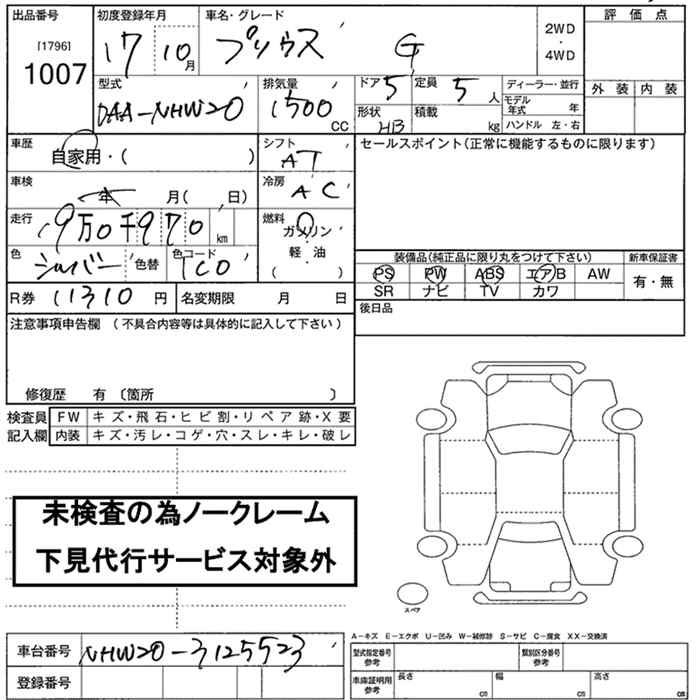 出品番号
[1796]
1007
初度登録年月
17 10月
車名・グレード
プリウス G
2WD
・
4WD
評価点
外装 内装
型式
DAA-NHW20
排気量
1500
CC
ドア 5
定員 5 人
形状 HB
積載 kg
ディーラー・並行
モデル年式 年
ハンドル 左・右
車歴
自家用・( )
シフト
AT
セールスポイント(正常に機能するものに限ります)
車検
年 月( 日)
冷房
AC
走行
9万0千970 km
燃料
ガソリン
軽・油
( )
色
シルバー
色替
色コード
1C0
装備品(純正品に限り丸をつけて下さい)
新車保証書
PS PW ABS エアB AW
SR ナビ TV カワ
有・無
R券 11310 円
名変期限 月 日
後日品
注意事項申告欄 (不具合内容等は具体的に記入して下さい)
修復歴 有 〔箇所 〕
検査員
記入欄
FW キズ・飛石・ヒビ割・リペア跡・X要
内装 キズ・汚レ・コゲ・穴・スレ・キレ・破レ
未検査の為ノークレーム
下見代行サービス対象外
スペア
A-キズ E-エクボ U-凹み W-補修跡 S-サビ C-腐食 XX-交換済
車台番号 NHW20-3125523
登録番号
型式指定番号
参考
類別区分番号
参考
車庫証明用
参考
長さ cm
幅 cm
高さ cm